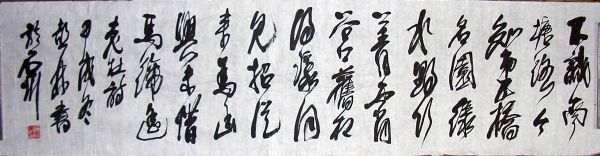 不識南
塘路今
知第五橋
名園依綠
水野竹
上青霄
谷口舊相
得濠梁同
見招平
生為幽
興未惜
馬蹄遙
老杜詩
甲戌冬
書
於